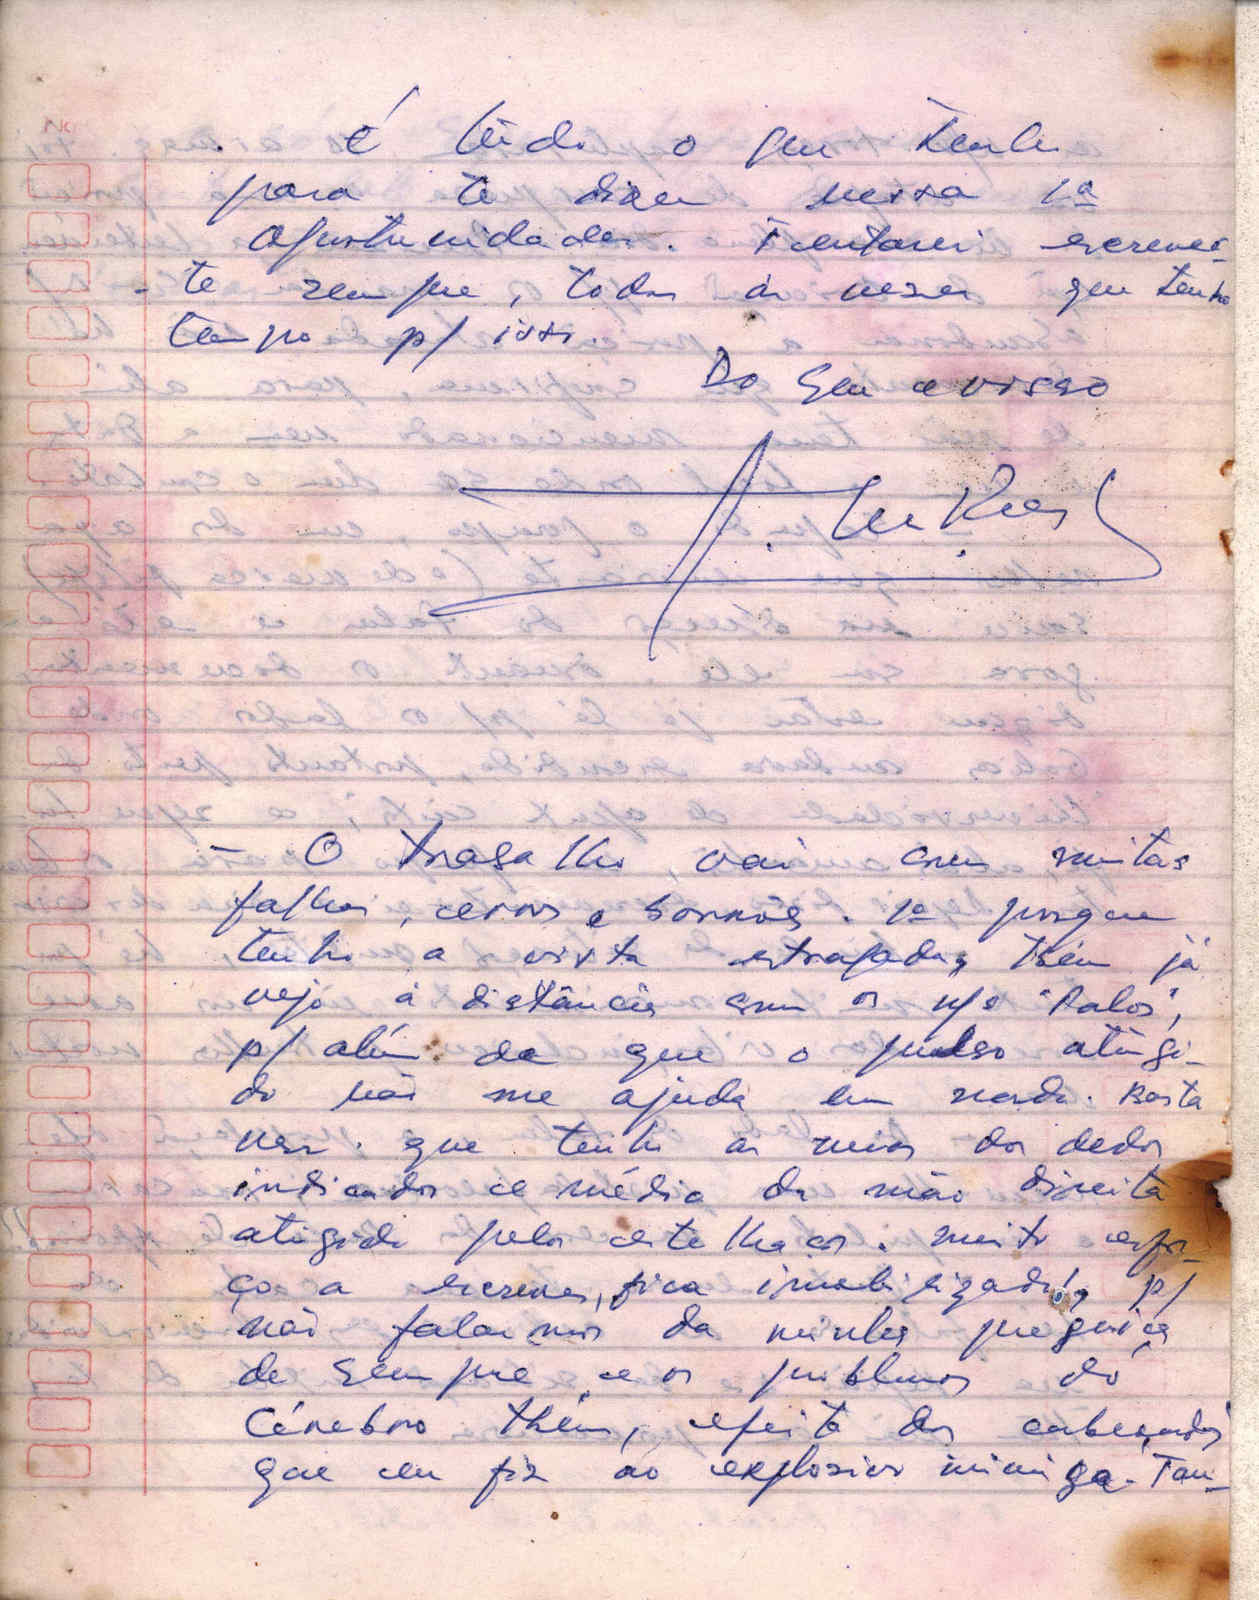 É tudo o que tenho
para te dizer nessa 1ª
oportunidades. Tentarei escrever-
-te sempre, todas as vezes que tenho
tempo p/ isso.
Do seu
- O trabalho vai com muitas
falhas, erros e borrões. 1º porque
tenho a vista estragada, tbém já
vejo à distância com os n/s
p/ além de que o pulso atingi-
do não me ajuda em nada. Basta
ver que tenho os dos dedos
indicador e médio da mão direita
atingido pelos estelhaços. muito esfor-
ço a escrever, fica imobilizado, p/
não falarmos da minha preguiça
de sempre e os problemas do
Cérebro tbém, efeito das cabeçadas
que eu fiz ao explosivo inimigo. Tam-